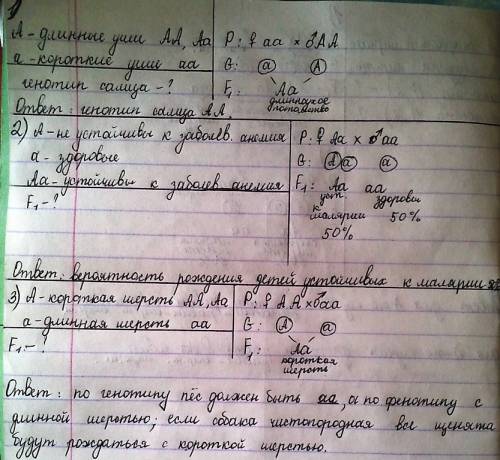 1
А - длинные уши АА, Аа
а - короткие уши аа
генотип самца - ?
P: ♀ аа × ♂ АА
G: а А
F₁: Аа
длинноухое
потомство
Ответ: генотип самца АА.
2) А - не устойчивы к заболев. анемия
а - здоровые
Аа - устойчивы к заболев анемия
F₁ - ?
P: ♀ Аа × ♂ аа
G: А а а
F₁: Аа аа
уст. здоровы
к
малярии 50%
50%
Ответ: вероятность рождения детей устойчивых к малярии
3) А - короткая шерсть АА, Аа
а - длинная шерсть аа
F₁ - ?
P: ♀ АА × ♂аа
G: А а
F₁: Аа
короткая
шерсть
Ответ: по генотипу пёс должен быть аа, а по фенотипу с
длинной шерстью; если собака чистопородная все щенята
будут рождаться с короткой шерстью.